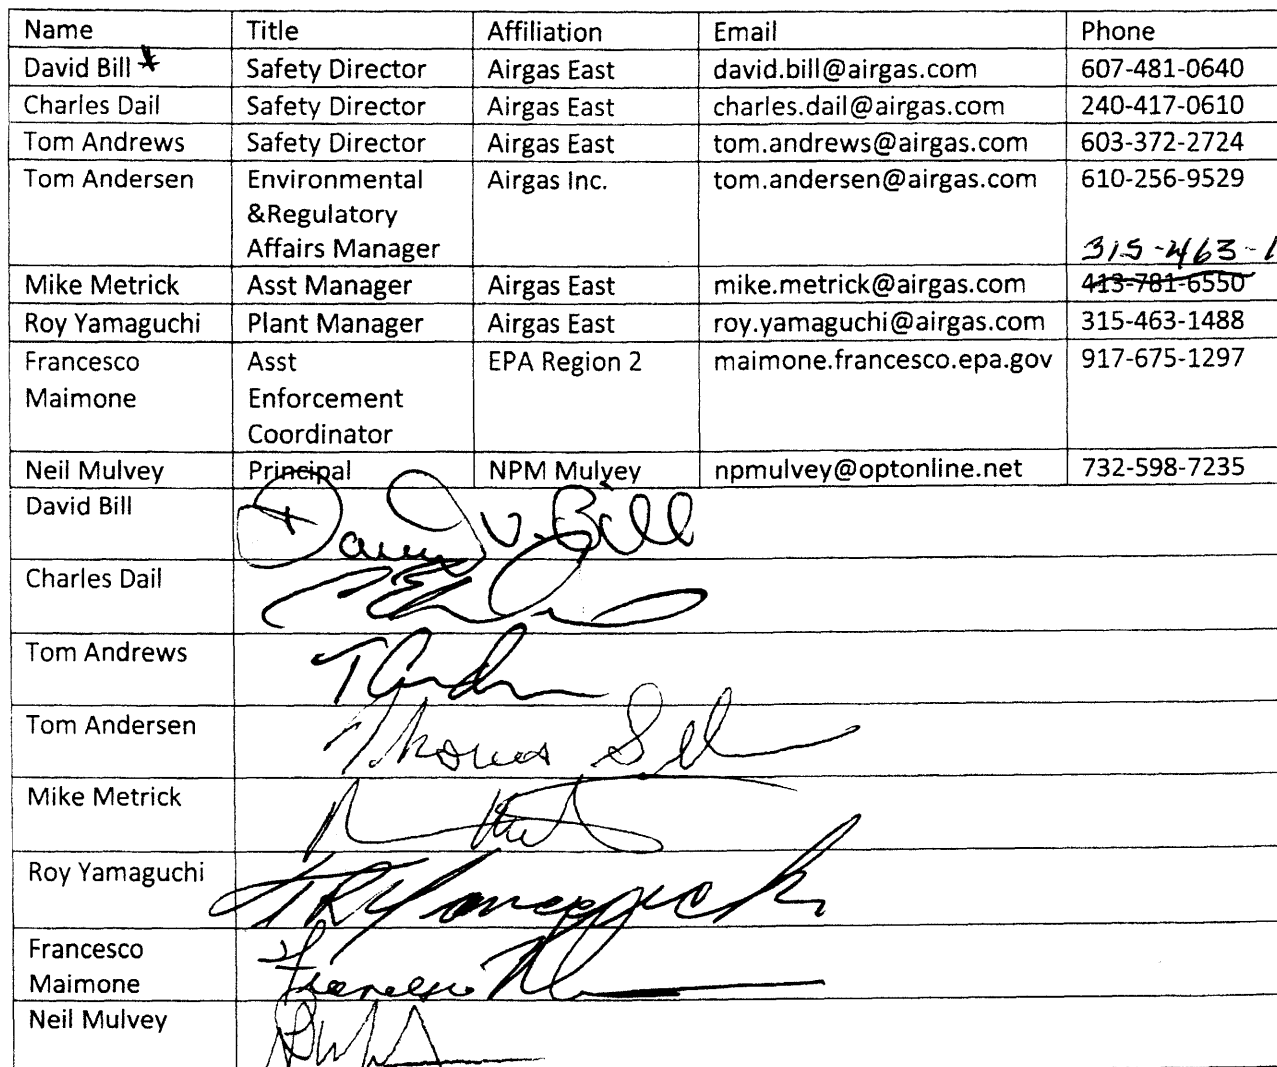 Name Title Affiliation Email Phone
David Bill * Safety Director Airgas East david.bill@airgas.com 607-481-0640
Charles Dail Safety Director Airgas East charles.dail@airgas.com 240-417-0610
Tom Andrews Safety Director Airgas East tom.andrews@airgas.com 603-372-2724
Tom Andersen Environmental Airgas Inc. tom.andersen@airgas.com 610-256-9529
&Regulatory
Affairs Manager
315-463-1
Mike Metrick Asst Manager Airgas East mike.metrick@airgas.com 413-781-6550
Roy Yamaguchi Plant Manager Airgas East roy.yamaguchi@airgas.com 315-463-1488
Francesco Asst EPA Region 2 maimone.francesco.epa.gov 917-675-1297
Maimone Enforcement
Coordinator
Neil Mulvey Principal NPM Mulvey npmulvey@optonline.net 732-598-7235
David Bill David V. Bill
Charles Dail
Tom Andrews
Tom Andersen Thomas
Mike Metrick
Roy Yamaguchi TRYamaguchi
Francesco
Maimone Francesco
Neil Mulvey